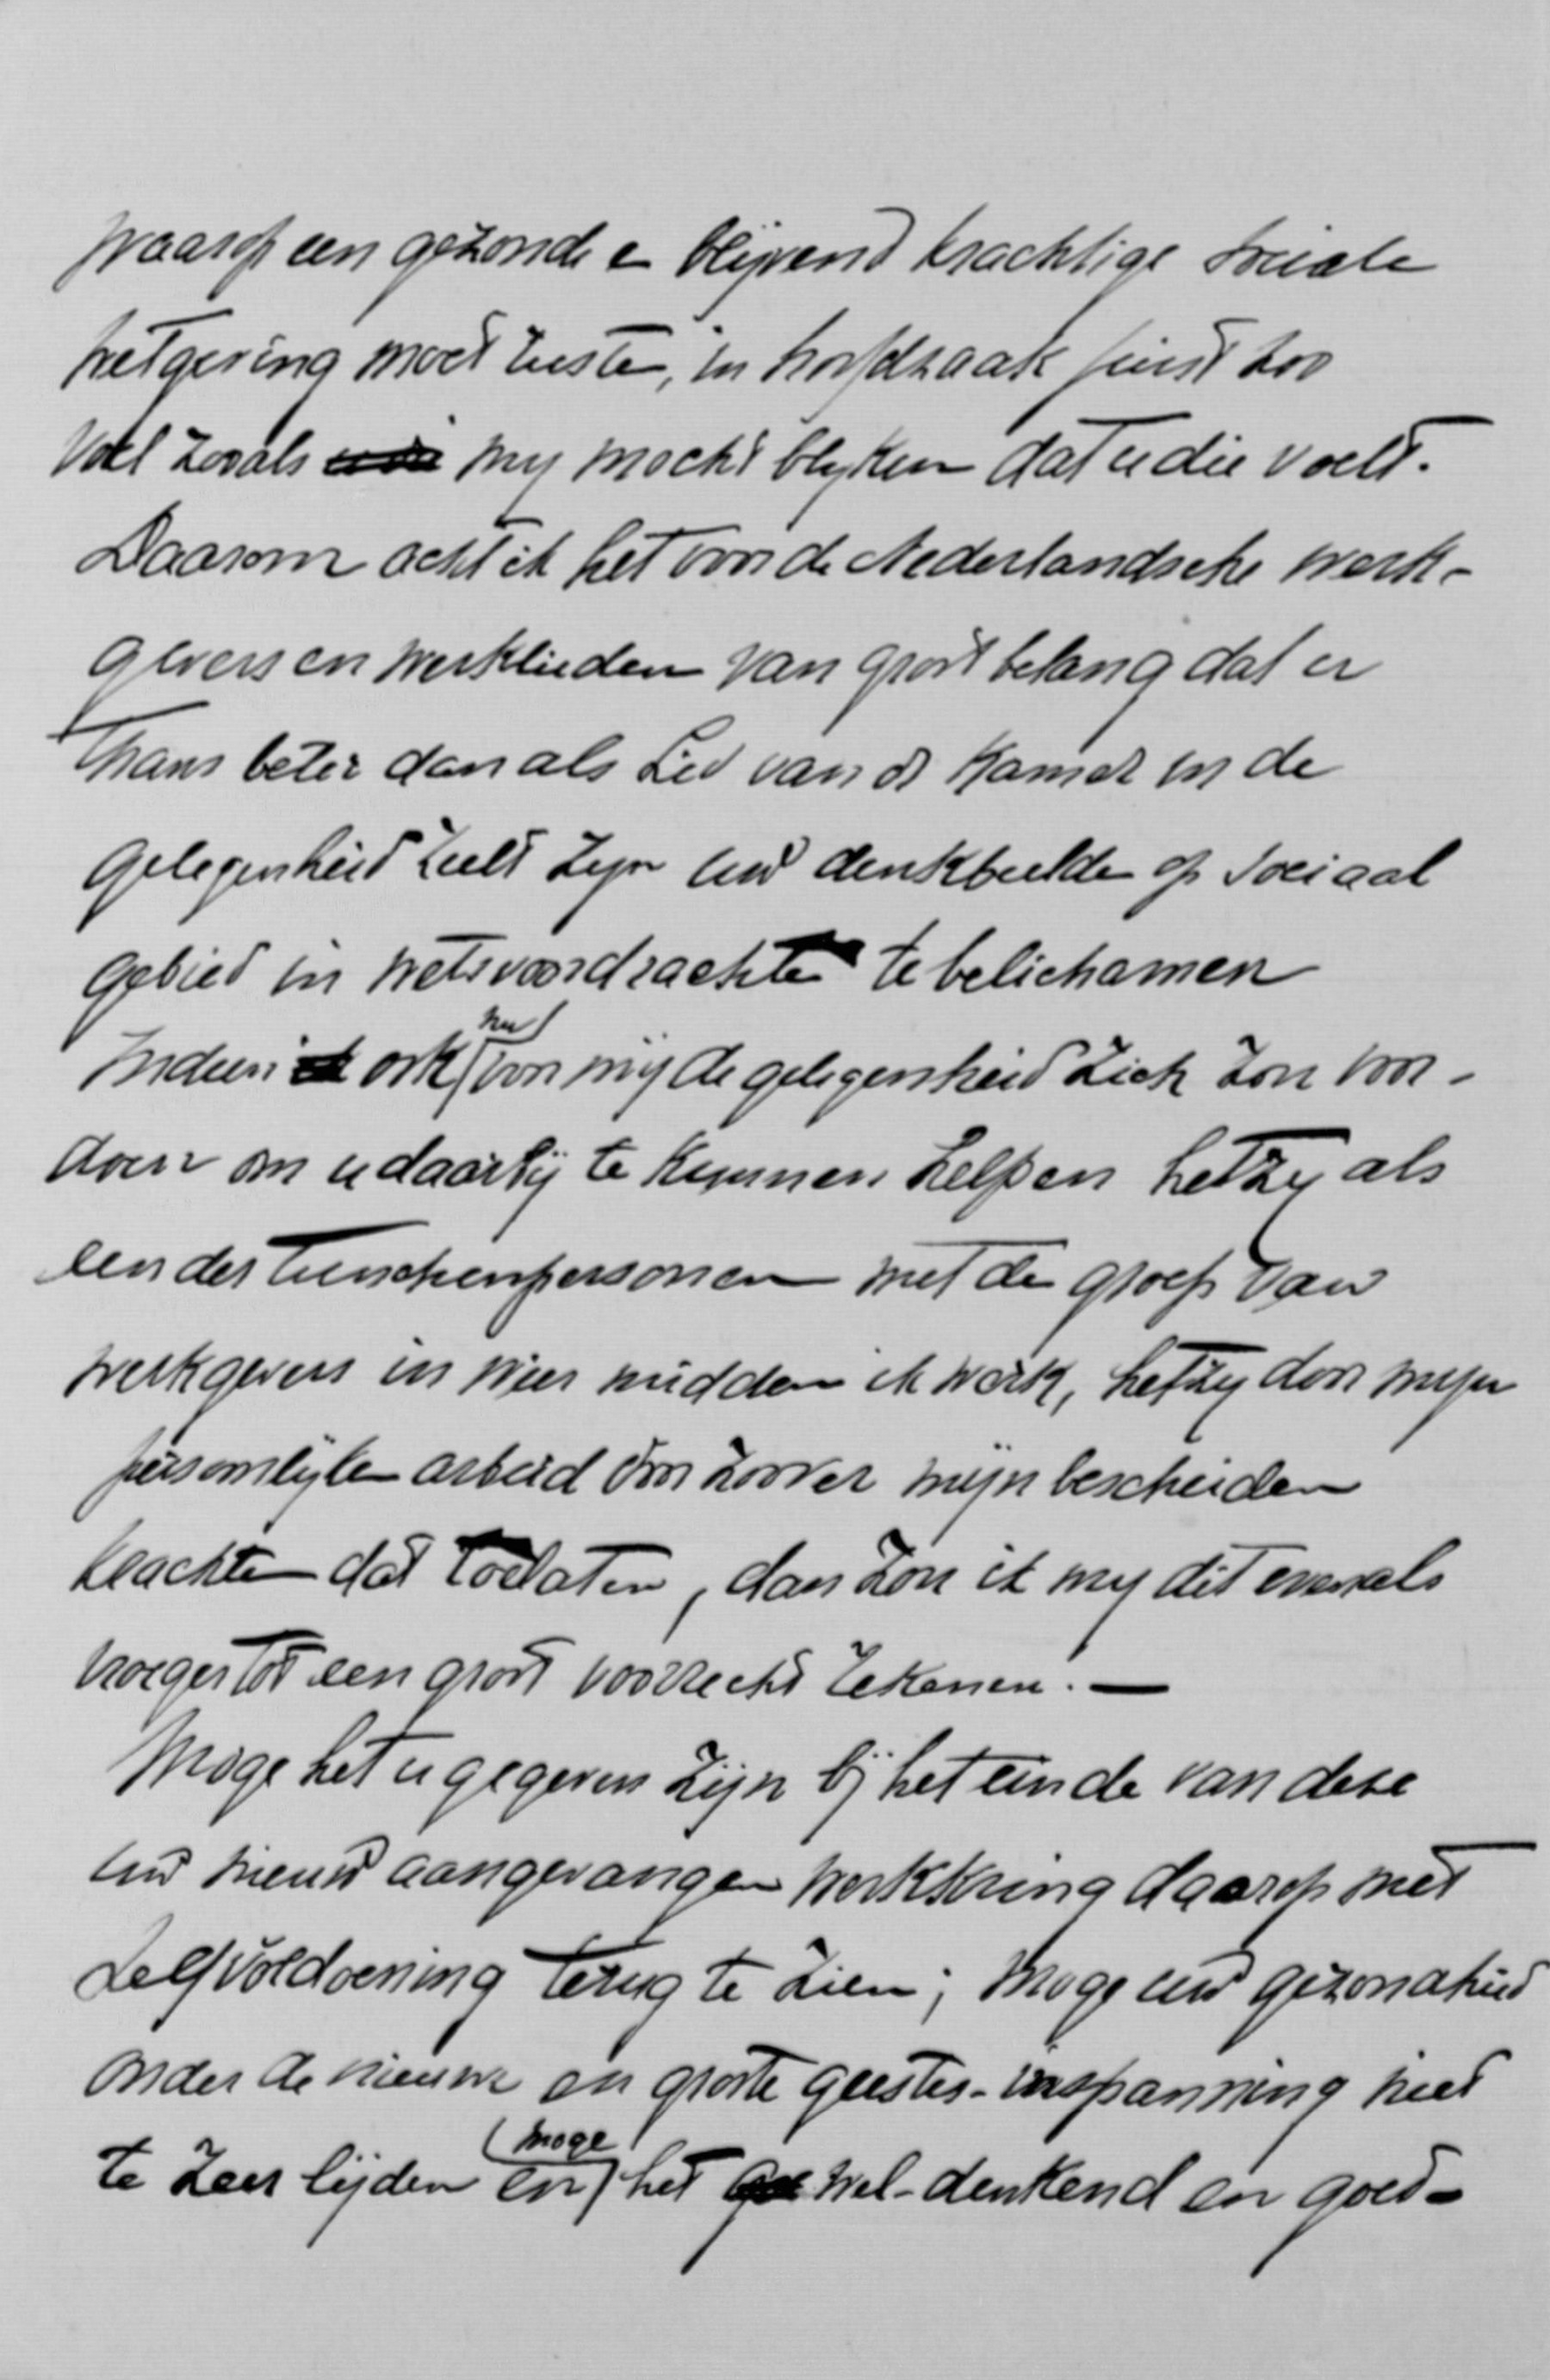 waarop een gezonde en blijvend krachtige sociale
wetgeving moet rusten, in hoofdzaak juist zoo
voel zooals my mocht blyken dat u die voelt.
Daarom acht ik het voor de Nederlandsche werk-
gevers en werklieden van groot belang dat er
thans beter dan als Lid van de Kamer in de
gelegenheid zult zyn uw denkbeelden op sociaal
gebied in wetsvoordrachten te belichamen
Indien ook nu voor mij de gelegenheid zich zou voor-
doen om u daarbij te kunnen helpen hetzy als
een der tusschenpersonen met de groep van
werkgevers in wier midden ik werk, hetzy door mijn
persoonlijken arbeid voor zoover mijn bescheiden
krachten dat toelaten, dan zou ik my dit evenals
vroeger tot een groot voorrecht rekenen. —
Moge het u gegeven zijn bij het einde van deze
uw nieuw aangevangen werkkring daarop met
zelfvoldoening terug te zien; moge uw gezondheid
onder de nieuwe en groote geestes-inspanning niet
te zeer lijden en moge het wel-denkend en goed-